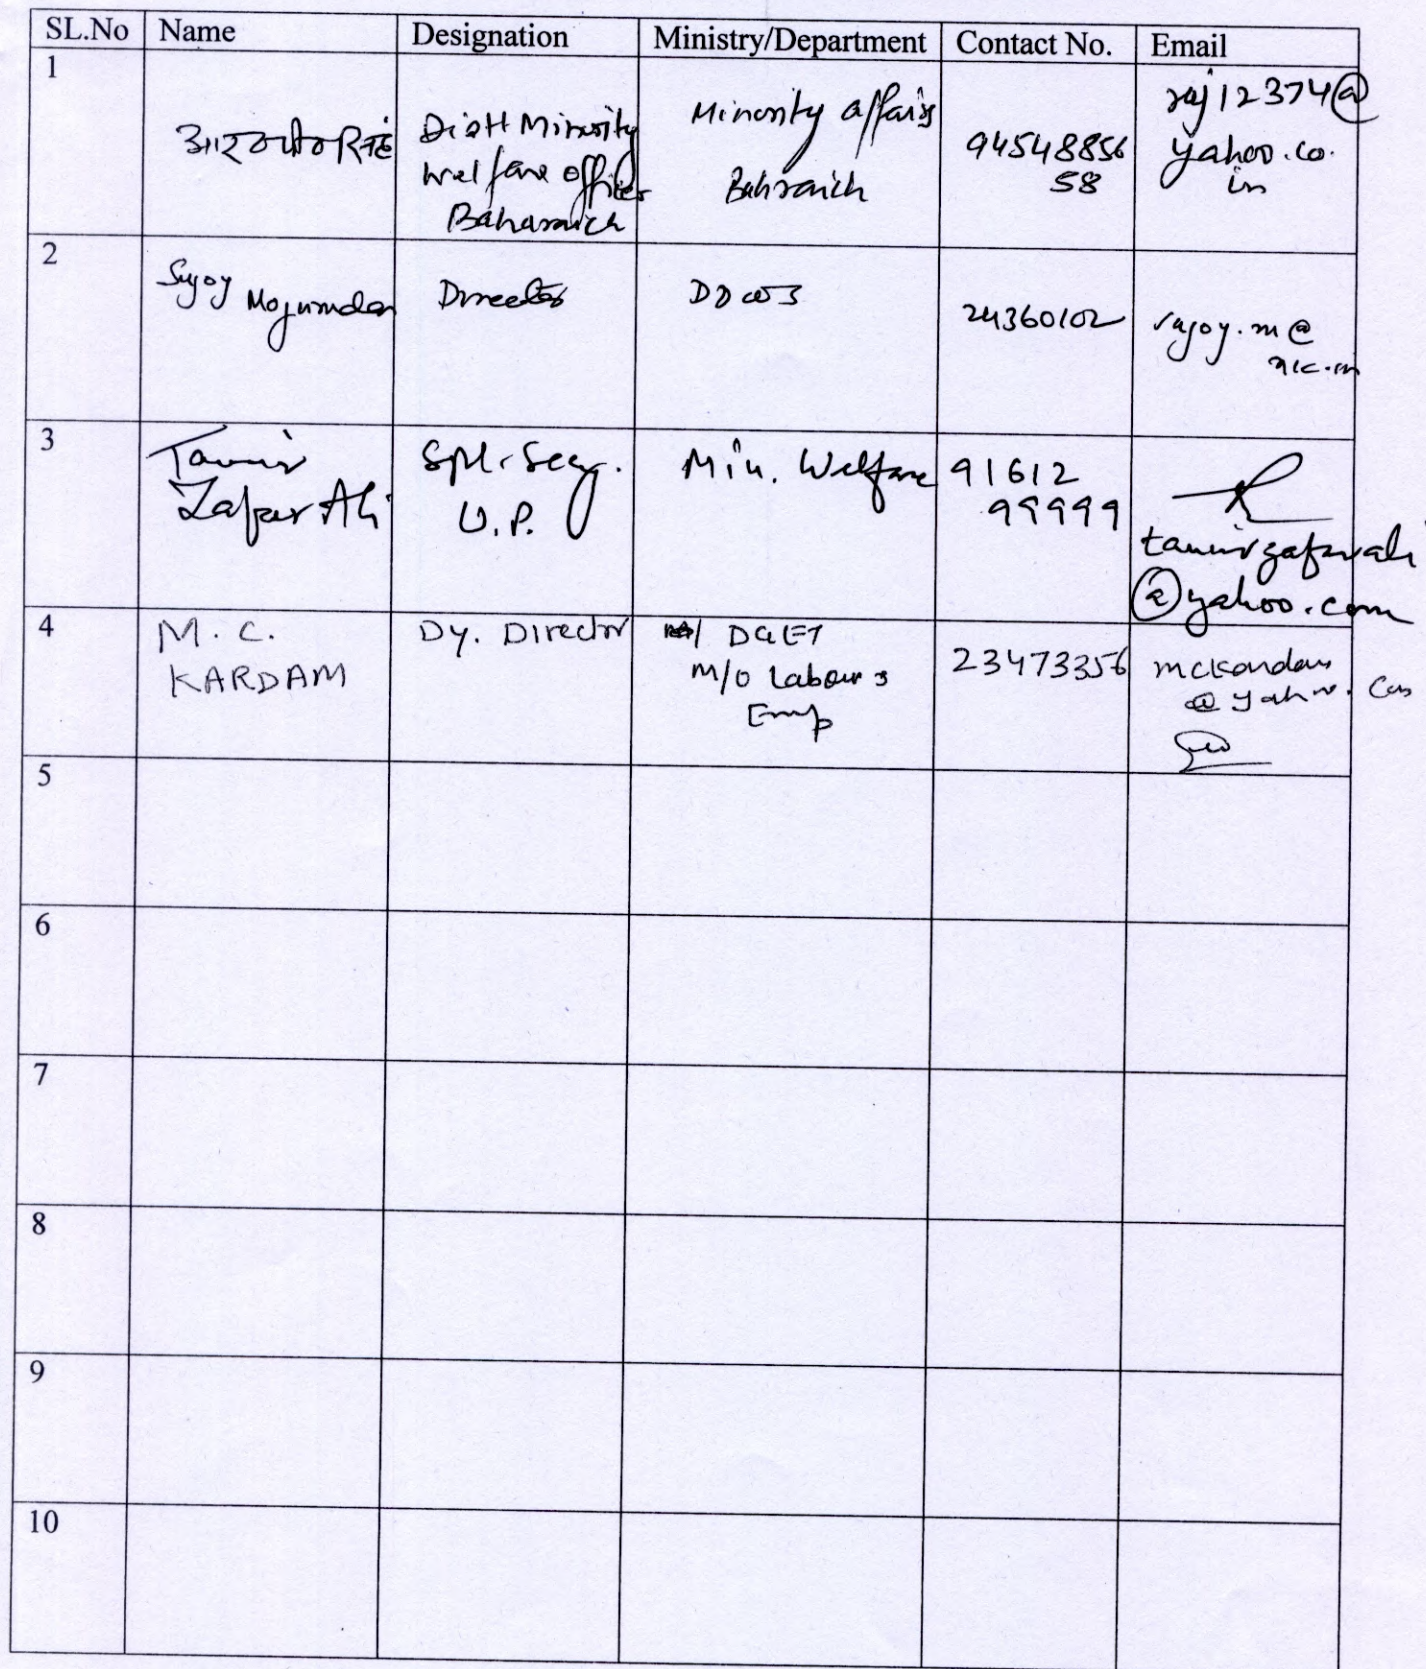 SL.No Name Designation Ministry/Department Contact No. Email
1
Distt Minority
welfare officer
Baharaich
Minority affairs
Bahraich
94548856
58
raj12374@
yahoo.co.
in
2
Sujoy Mojumdar
Director
DDWS
24360102
sujoy.m@
nic.in
3
Tanvir
Zafar Ali
Spl. Secy.
U.P.
Min. Welfare
91612
99999
tanvirzafarali
@yahoo.com
4
M. C.
KARDAM
Dy. Director
DGET
M/o Labour &
Emp
23473356
mckardam
@yahoo.com
5
6
7
8
9
10